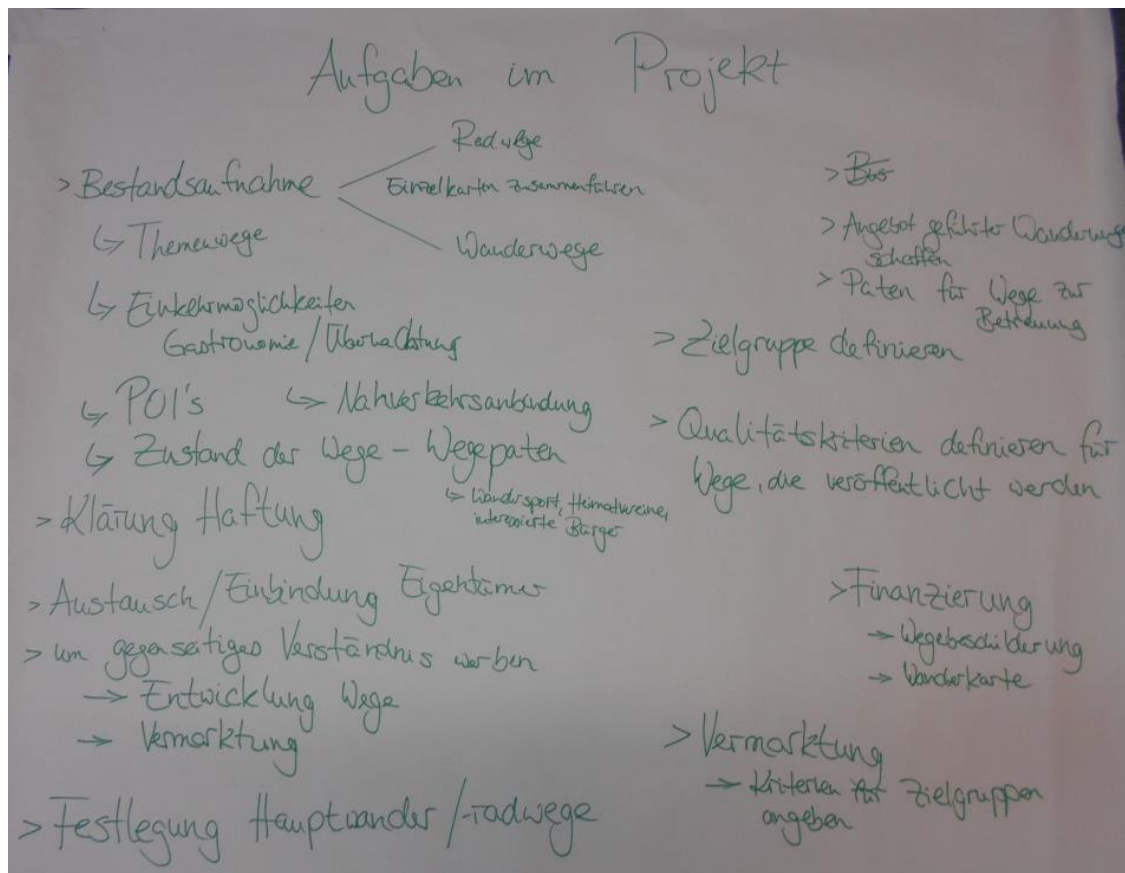 Aufgaben im Projekt
> Bestandsaufnahme
Radwege
Einzelkarten zusammenführen
Wanderwege
↳ Themenwege
↳ Einkehrmöglichkeiten
Gastronomie / Übernachtung
↳ POI's ↳ Nahverkehrsanbindung
↳ Zustand der Wege - Wegepaten
↳ Wandersport, Heimatvereine,
interessierte Bürger
> Klärung Haftung
> Austausch / Einbindung Eigentümer
> um gegenseitiges Verständnis werben
→ Entwicklung Wege
→ Vermarktung
> Festlegung Hauptwander /-radwege
>
> Angebot geführter Wanderunge
schaffen
> Paten für Wege zur
Betreuung
> Zielgruppe definieren
> Qualitätskriterien definieren für
Wege, die veröffentlicht werden
> Finanzierung
→ Wegebeschilderung
→ Wanderkarte
> Vermarktung
→ Kriterien für Zielgruppen
angeben